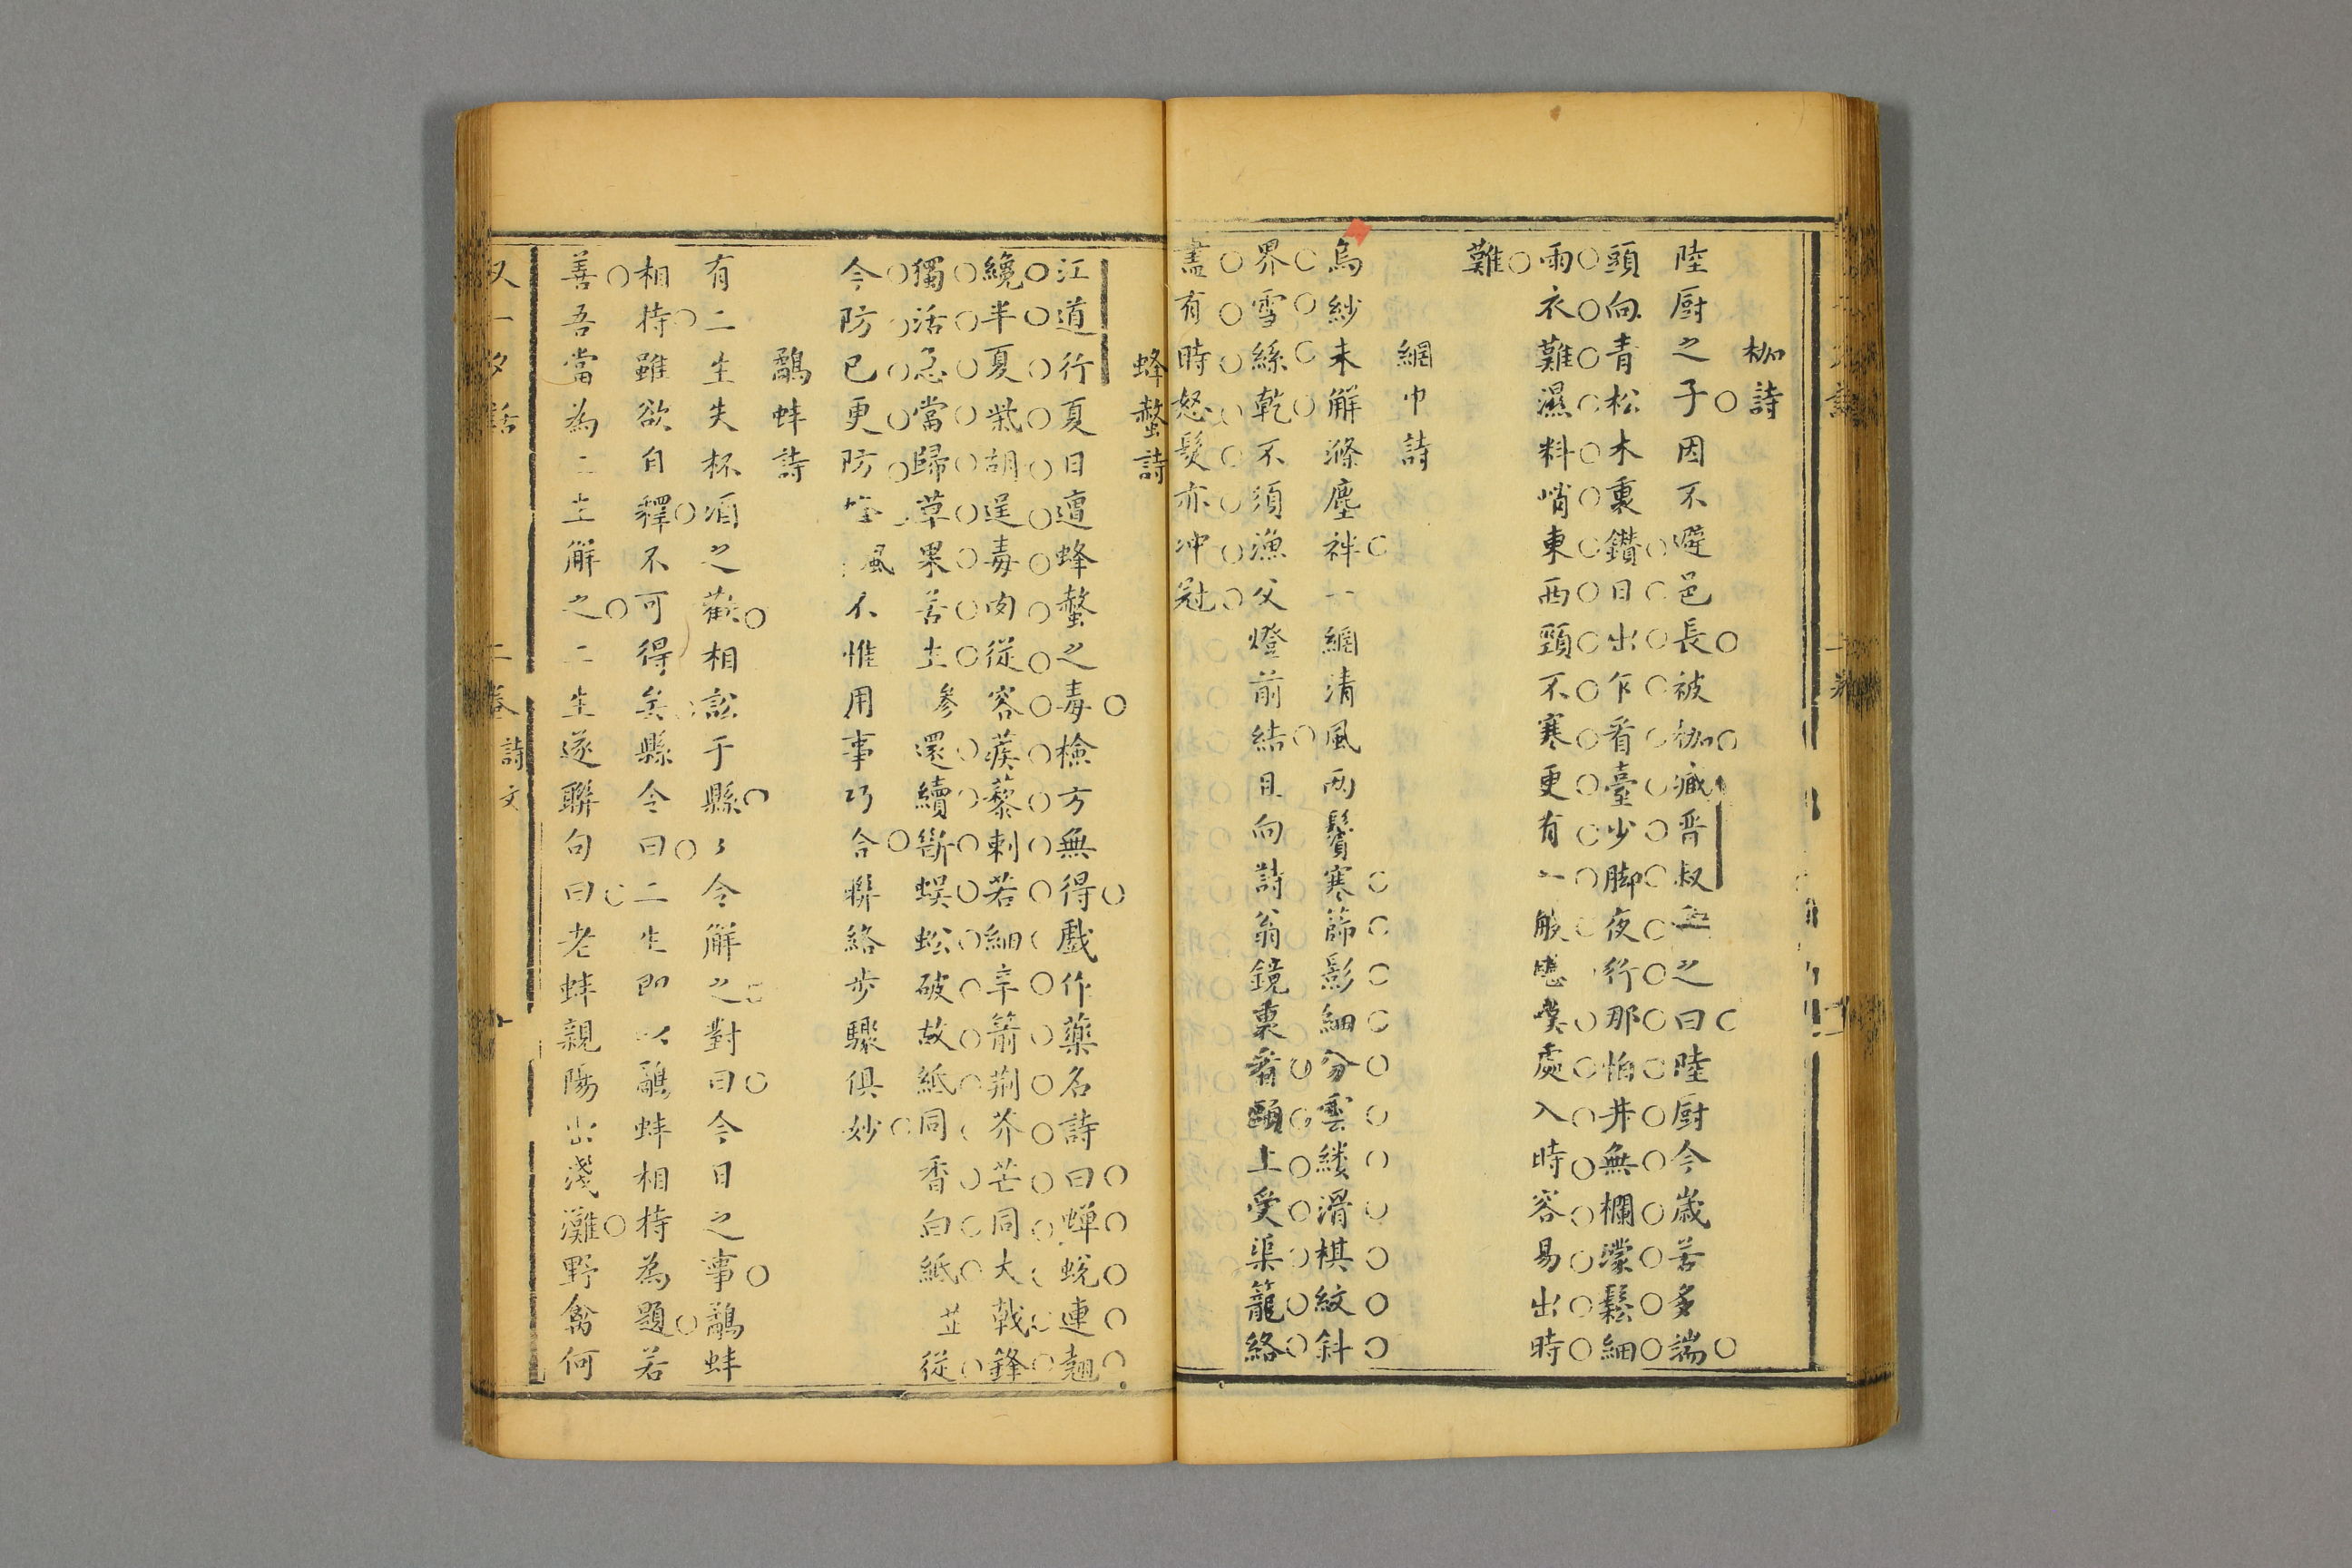 枷詩
陸厨之子因不避邑長被枷臧晉叔之曰陸厨今歲苦多端
頭向青松木裏鑽日出乍看臺少脚夜行那怕井無欄濛鬆細
雨衣難濕料峭東西頸不寒更有一般處入時容易出時
難
網巾詩
烏紗未解滌塵袢一網清風兩鬢寒篩影細分雲縷滑棋紋斜
界雪絲乾不須漁父燈前結且向詩翁鏡裏看頭上受渠籠絡
盡有時怒髮亦冲冠
蜂螫詩
江道行夏日遭蜂螫之毒檢方無得戲作藥名詩曰蟬蛻連翹
纔半夏柴胡逞毒肉從容蒺藜刺若細辛箭荆芥芒同大戟鋒
獨活急當歸草果苦參還續斷蜈蚣破故紙同香白紙並從
今防已更防風不惟用事巧合聯絡步驟俱妙
鷸蚌詩
有二生失杯酒之歡相訟于縣々令解之對曰今日之事鷸蚌
相持雖欲自釋不可得矣縣令曰二生即以鷸蚌相持為題若
善吾當為二生解之二生遂聯句曰老蚌親陽出淺灘野禽何
又一夕話
二卷
詩文